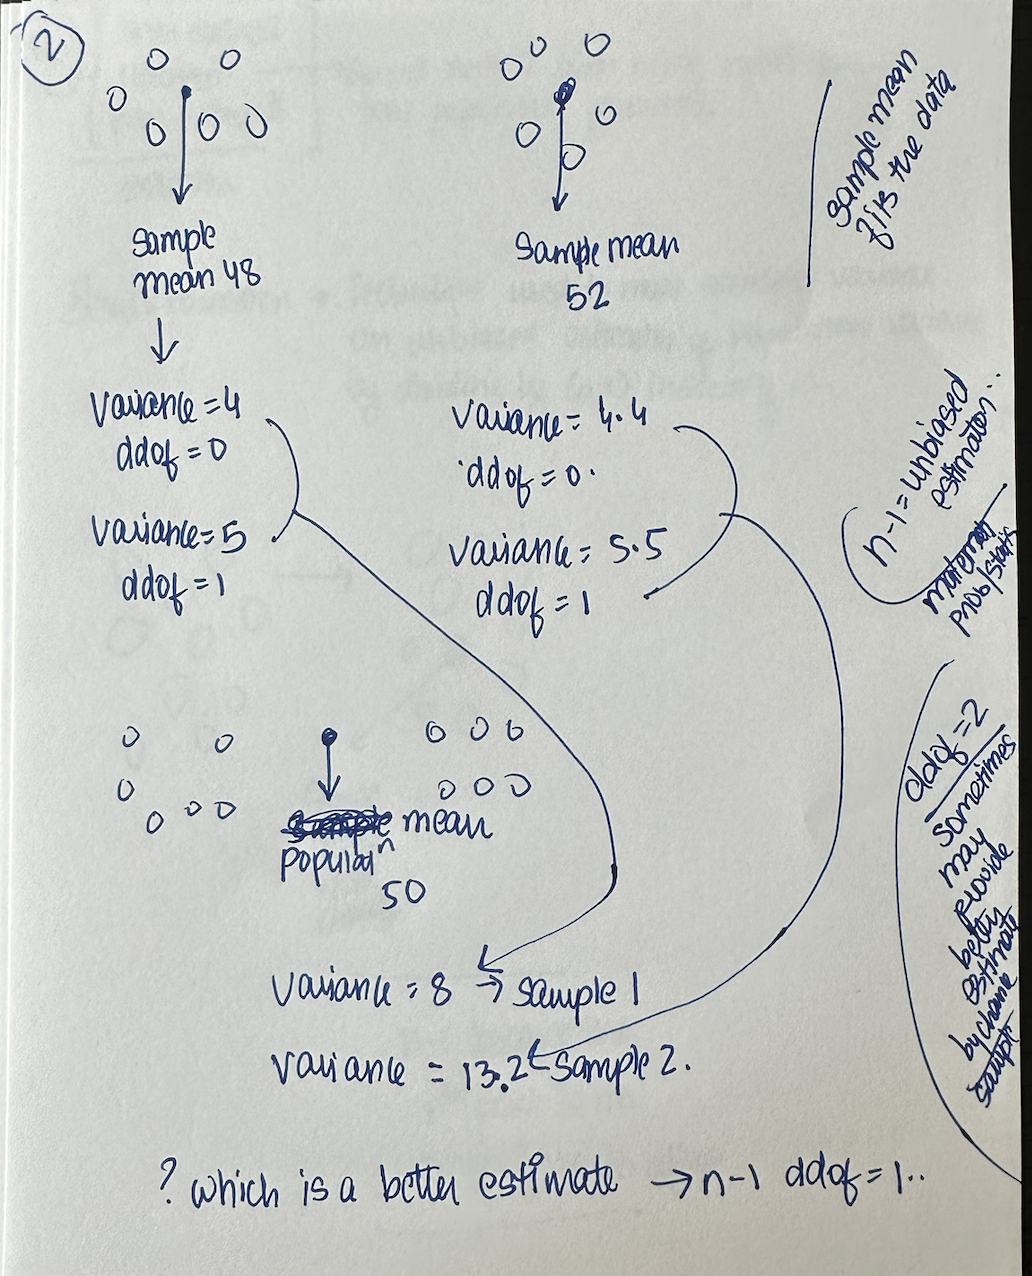 2
sample
mean 48
sample mean
52
sample mean
fits the data
variance = 4
ddof = 0
variance = 5
ddof = 1
variance = 4.4
ddof = 0.
variance = 5.5
ddof = 1
n-1 = unbiased
estimator..
prob/stats
mean
populatⁿ
50
variance = 8 → sample 1
variance = 13.2 ← sample 2.
ddof = 2
sometimes
may
provide
better
estimate
by chance
sample
? which is a better estimate → n-1 ddof = 1..